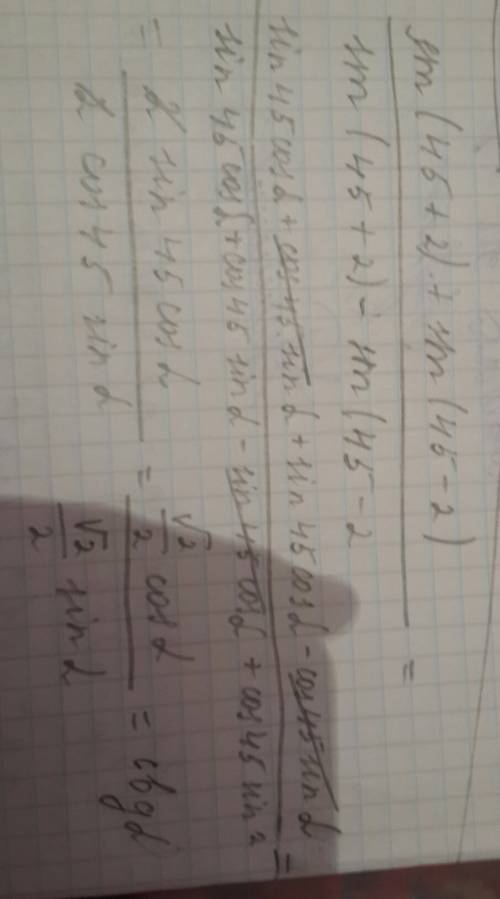 sin(45+2)+sin(45-2)
sin(45+2)-sin(45-2 =
sin 45 cos α + cos 45 sin α + sin 45 cos α - cos 45 sin α
sin 45 cos α + cos 45 sin α - sin 45 cos α + cos 45 sin α =
= 2 sin 45 cos α / 2 cos 45 sin α = √2/2 cos α / √2/2 sin α = ctg α